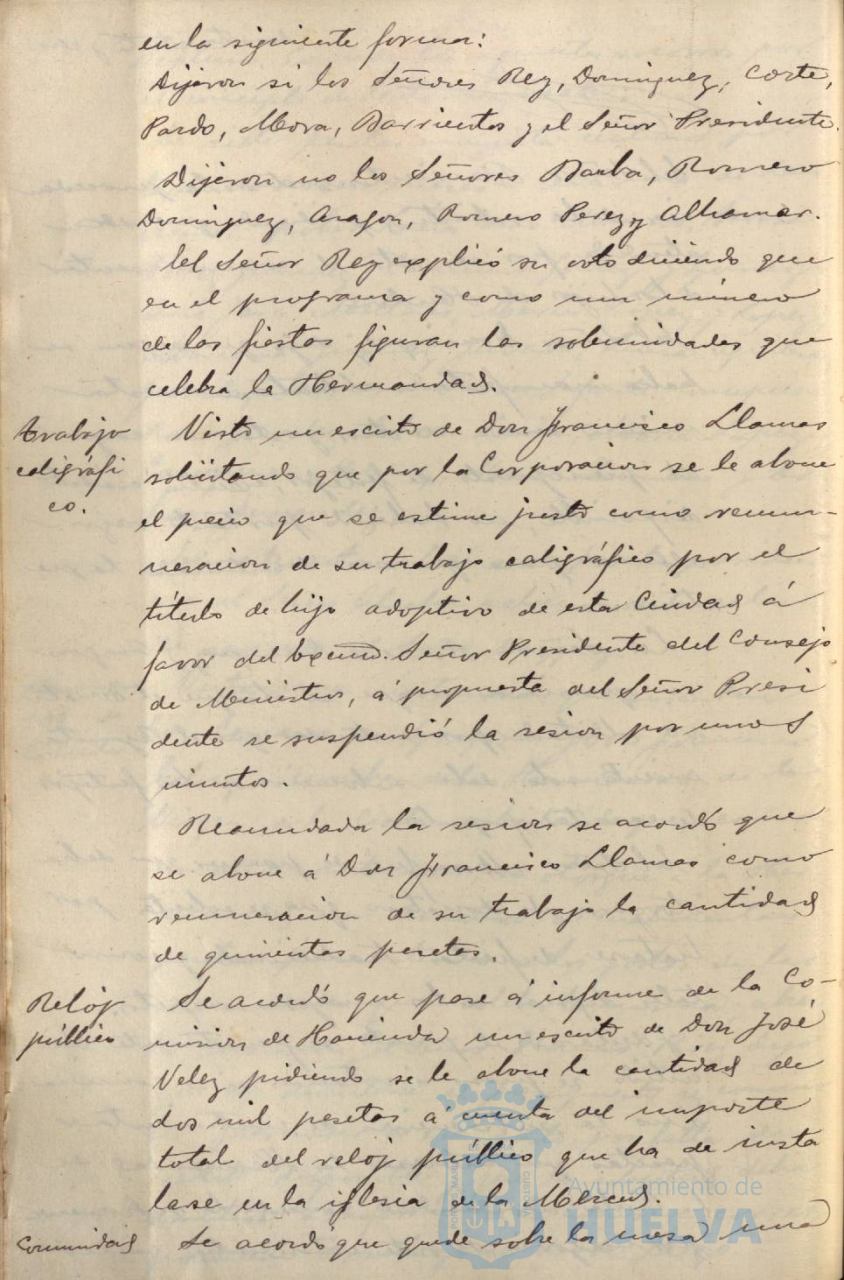 en la siguiente forma:
Dijeron si los Señores Rey, Dominguez, Corte,
Pardo, Mora, Barrientos y el Señor Presidente.
Dijeron no los Señores Barba, Romero
Dominguez, Aragon, Romero Perez y Alhamar.
El Señor Rey explicó su voto diciendo que
en el programa y como un número
de las fiestas figuran las solemnidades que
celebra la Hermandad.
Trabajo
caligráfi
co.
Visto un escrito de Don Francisco Llamas
solicitando que por la Corporacion se le abone
el precio que se estime justo como remu-
neracion de su trabajo caligráfico por el
título de hijo adoptivo de esta Ciudad á
favor del Excmo. Señor Presidente del Consejo
de Ministros, á propuesta del Señor Presi
dente se suspendió la sesion por unos
minutos.
Reanudada la sesion se acordó que
se abone á Don Francisco Llamas como
remuneracion de su trabajo la cantidad
de quinientas pesetas.
Reloj
público
Se acordó que pase á informe de la Co-
mision de Hacienda un escrito de Don José
Velez pidiendo se le abone la cantidad de
dos mil pesetas á cuenta del importe
total del reloj público que ha de insta
larse en la iglesia de la Merced.
Comunidad
Se acordó que quede sobre la mesa una
Ayuntamiento de
HUELVA